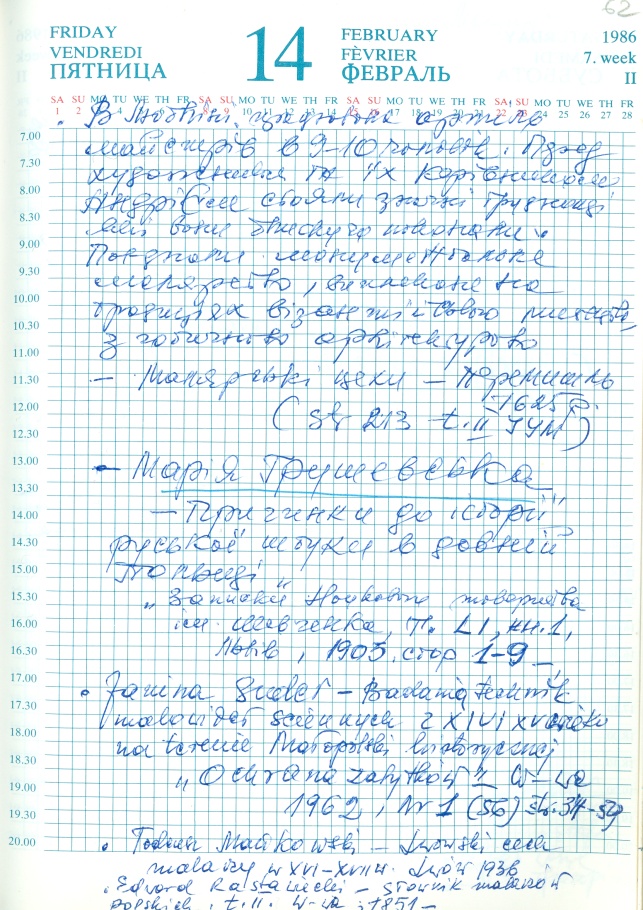 62
FRIDAY
VENDREDI
ПЯТНИЦА
14
FEBRUARY
FÈVRIER
ФЕВРАЛЬ
1986
7. week
II
SA SU MO TU WE TH FR SA SU MO TU WE TH FR SA SU MO TU WE TH FR SA SU MO TU WE TH FR
1 2 3 4 5 6 7 8 9 10 11 12 13 14 15 16 17 18 19 20 21 22 23 24 25 26 27 28
7.00
7.30
8.00
8.30
9.00
9.30
10.00
10.30
11.00
11.30
12.00
12.30
13.00
13.30
14.00
14.30
15.00
15.30
16.00
16.30
17.00
17.30
18.00
18.30
19.00
19.30
20.00
• В Любліні працювала артель
майстрів в 9-10 чоловік. Перед
художниками та їх керівником
Андрієм стояли значні труднощі
які вони блискуче подолали.
Поєднати монументальне
малярство, виплекане на
традиціях візантійського мистецтва,
з готичною архітектурою
— Малярські цехи — Перемишль
1625 р.
(Str 213 t. II ІУМ)
— Марія Грушевська
— Причинки до історії
руської штуки в давній
Польщі"
„Записки Наукового товариства
ім. Шевченка, т. LI, кн. 1,
Львів, 1903. стор 1-9 —
• Janina — Badania technik
malowideł ściennych z XIV i XV wieku
na terenie Małopolski historycznej
„Ochrona zabytków" W-wa
1962, Nr 1 (56) str. 34-59
• Tadeusz Mańkowski — Lwowski cech
malarzy w XVI-XVII w. Lwów 1936
• Edward Rastawiecki — Słownik malarzów
polskich, t. II. W-wa, 1851 —